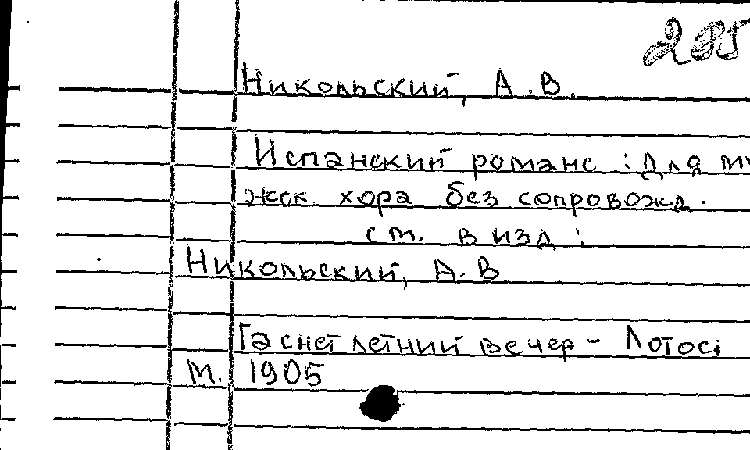 285
Никольский, А.В.
Испанский романс : для му
жск. хора без сопровожд.
см. в изд :
Никольский, А.В
Гаснет летний вечер - Лотос
М. 1905